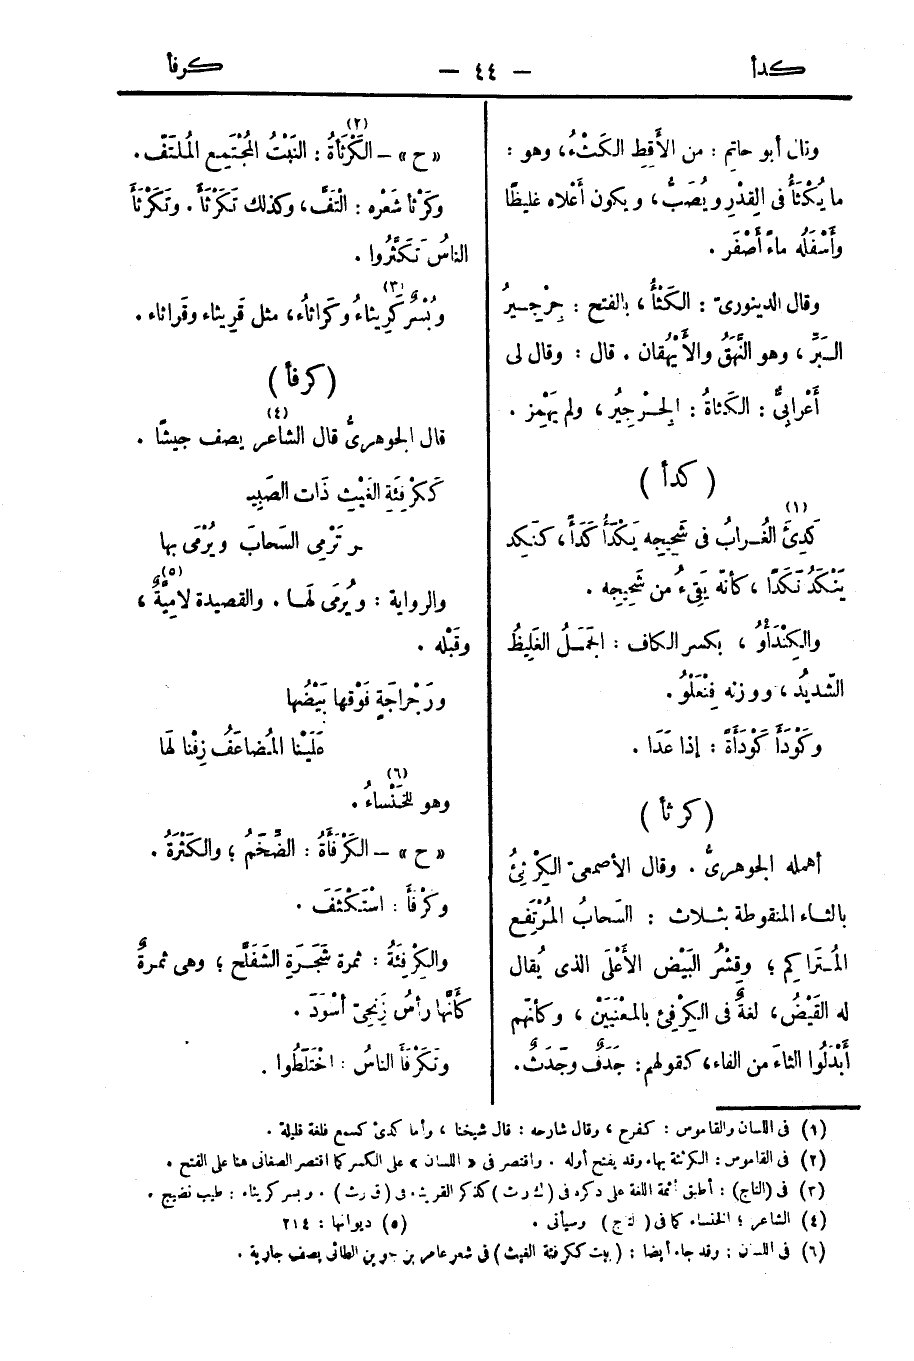 كدأ — ٤٤ — كرفأ
وقال أبو حاتم : من الأَقِطِ الكَثْءُ، وهو :
ما يُكْثَأُ فى القِدْرِ ويُصَبُّ، ويكون أَعْلاه غليظًا
وأَسْفَلُه ماءً أَصْفَر .
وقال الدينورىّ : الكَثْأَةُ، بالفتح : جِرْجِيرُ
البَرِّ ، وهو النَّهَقُ والأَيْهُقان . قال : وقال لى
أَعْرابِىٌّ : الكَثاةُ : الجِرْجِيرُ ، ولم يَهْمِز .
( كدأ )
(١)
كَدِئَ الغُرابُ فى شَحِيجِه يَكْدَأُ كَدَأً، كَنَكِد
يَنْكَدُ نَكَدًا ، كأنّه يَقِىءُ من شَحِيجِه .
والكِنْدَأْوُ ، بكسر الكاف : الجَمَلُ الغَلِيظُ
الشّديدُ ، ووزنه فِنْعَلْوُ .
وكَوْدَأَ كَوْدَأَةً : إذا عَدَا .
( كرثأ )
أهمله الجوهرىُّ . وقال الأصمعىّ الكِرْثِئُ
بالثاء المنقوطة بثلاث : السَحابُ المُرْتَفِع
المُتَراكِم ؛ وقِشْرُ البَيْض الأَعْلَى الذى يُقال
له القَيْضُ، لغةٌ فى الكِرْفِئ بالمعْنَيَيْن ، وكأنّهم
أَبْدَلُوا الثاءَ من الفاء، كقولهم: جَدَفٌ وجَدَثٌ.
(٢)
« ح » – الكَرْثَأَةُ : النَبْتُ المُجْتَمِع المُلتَفّ .
وكَرْثَأَ شَعْره : الْتَفَّ، وكذلك تَكَرْثَأَ . وتَكَرْثَأَ
الناسُ تَكَثَّرُوا .
(٣)
وبُسْرٌ كَرِيثاءُ وكَرَاثاءُ، مثل قَرِيثاء وقَرَاثاء .
( كرفأ )
(٤)
قال الجوهرىُّ قال الشاعر يصف جيشًا .
كَكِرْفِئَةِ الغَيْثِ ذَات الصَبِيـ
ـرِ تَرْمِى السَحابَ ويُرْمَى بها
(٥)
والرواية : ويُرمَى لَهـا . والقصيدة لامِيَّةٌ ،
وقَبْله .
ورَجْراجَةٍ فَوْقَها بَيْضُها
عَلَيْنا المُضاعَفُ زِفْنا لَها
(٦)
وهو للخَنْساءُ .
« ح » – الكَرْفَأَةُ : الضِّخَمُ ؛ والكَثْرَةُ .
وكَرْفَأَ : اسْتَكْثَفَ .
والكِرْفِئَةُ : ثمرة شَجَرَةِ الشَفَلَّحِ ؛ وهى ثمرةٌ
كأَنَّها رأسُ زَنجِىّ أسْوَدَ .
وتَكَرْفَأَ الناسُ : اخْتَلَطُوا .
(١) فى اللسان والقاموس : كفرح ، وقال شارحه : قال شيخنا ، وأما كدئ كسمع فلغة قليلة .
(٢) فى القاموس : الكرثئة بهاء وقد يفتح أوله . واقتصر فى « اللسان » على الكسر كما اقتصر الصغانى هنا على الفتح .
(٣) فى (التاج) : أطبق أئمة اللغة على ذكره فى (ك رث) كذكر القريث فى (ق رث) . وبسر كريثاء : طيب نضيج .
(٤) الشاعر ؛ الخنساء كما فى ( التاج ) وسيأتى . (٥) ديوانها : ٢١٤
(٦) فى اللسان : وقد جاء أيضا : ( بيت ككرفئة الغيث ) فى شعر عامر بن جوين الطائى يصف جارية .